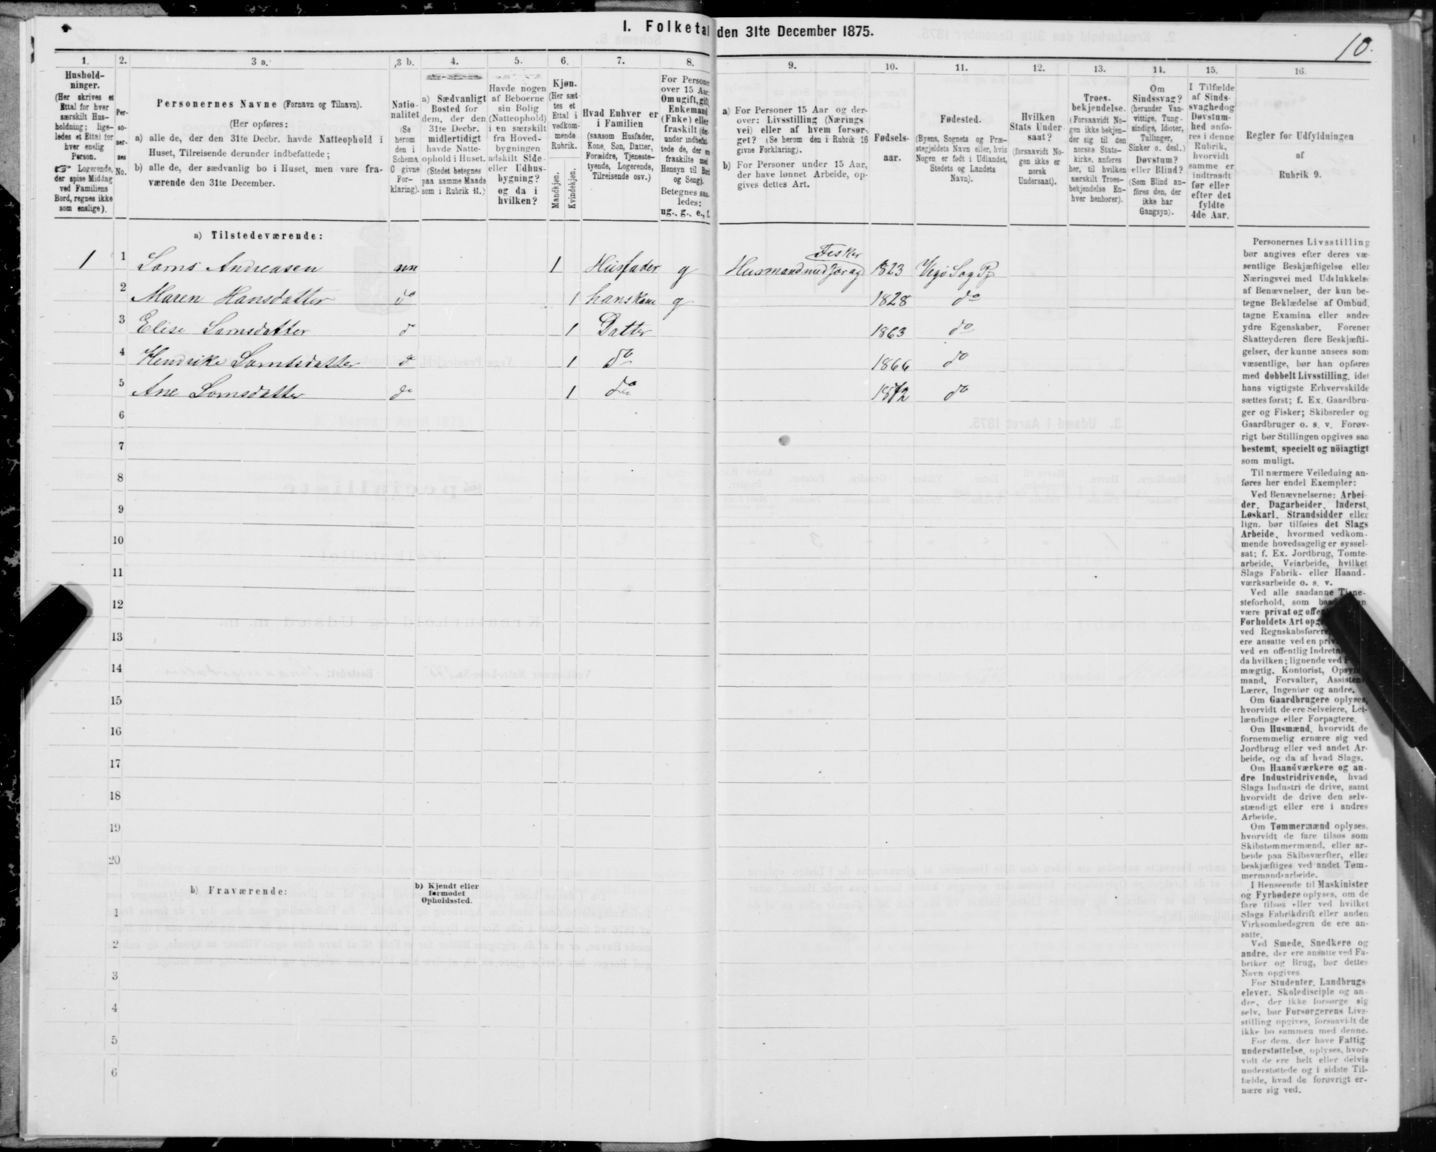 I. Folketal den 31te December 1875.
10.
1. 2. 3 a. 3 b. 4. 5. 6. 7. 8. 9. 10. 11. 12. 13. 14. 15. 16.
Hushold-
ninger.
(Her skrives et
Ettal for hver
særskilt Hus-
holdning; lige-
ledes et Ettal for
hver enslig
Person.
Logerende,
der spise Middag
ved Familiens
Bord, regnes ikke
som enslige).
Per-
so-
ner-
nes
No.
Personernes Navne (Fornavn og Tilnavn).
(Her opføres:
a) alle de, der den 31te Decbr. havde Natteophold i
Huset, Tilreisende derunder indbefattede;
b) alle de, der sædvanlig bo i Huset, men vare fra-
værende den 31te December.
Natio-
nalitet
(Se
herom
den i
Schema
C givne
For-
klaring).
a) Sædvanligt
Bosted for
dem, der den
31te Decbr.
midlertidigt
havde Natte-
ophold i Huset.
(Stedet betegnes
paa samme Maade
som i Rubrik 11.)
Havde nogen
af Beboerne
sin Bolig
(Natteophold)
i en særskilt
fra Hoved-
bygningen
adskilt Side-
eller Udhus-
bygning?
og da i
hvilken?
Kjøn.
(Her sæt-
tes et
Ettal i
vedkom-
mende
Rubrik.
Mandkjøn.
Kvindekjøn.
Hvad Enhver er
i Familien
(saasom Husfader,
Kone, Søn, Datter,
Forældre, Tjeneste-
tyende, Logerende,
Tilreisende osv.)
For Personer
over 15 Aar:
Om ugift, gift,
Enkemand
(Enke) eller
fraskilt (der-
under indbefat-
tede de, der ere
fraskilte med
Hensyn til Bord
og Seng).
Betegnes saa-
ledes:
ug., g., e., f.
a) For Personer 15 Aar og der-
over: Livsstilling (Nærings-
vei) eller af hvem forsør-
get? (Se herom den i Rubrik 16
givne Forklaring).
b) For Personer under 15 Aar,
der have lønnet Arbeide, op-
gives dettes Art.
Fødsels-
aar.
Fødested.
(Byens, Sognets og Præ-
stegjeldets Navn eller, hvis
Nogen er født i Udlandet,
Stedets og Landets
Navn).
Hvilken
Stats Under-
saat?
(forsaavidt No-
gen ikke er
norsk
Undersaat).
Troes-
bekjendelse.
(Forsaavidt No-
gen ikke bekjen-
der sig til den
norske Stats-
kirke, anføres
her, til hvilken
særskilt Troes-
bekjendelse En-
hver henhører).
Om
Sindssvag?
(herunder Van-
vittige, Tung-
sindige, Idioter,
Tullinger,
Sinker o. desl.)
Døvstum?
eller Blind?
(Som Blind an-
føres den, der
ikke har
Gangsyn).
I Tilfælde
af Sinds-
svaghed og
Døvstum-
hed anfø-
res i denne
Rubrik,
hvorvidt
samme er
indtraadt
før eller
efter det
fyldte
4de Aar.
Regler for Udfyldningen
af
Rubrik 9.
a) Tilstedeværende:
1 1 Loms Andreasen nn 1 Husfader g Husmand med Jor ag Fisker 1823 Vegø Sog Pr
2 Maren Hansdatter do 1 hans kone g 1828 do
3 Elise Lomsdatter d 1 Datter 1863 do
4 Hendrike Lomsdatter d 1 do 1866 do
5 Ane Lomsdatter do 1 do 1872 do
6
7
8
9
10
11
12
13
14
15
16
17
18
19
20
b) Fraværende:
b) Kjendt eller
formodet
Opholdssted.
1
2
3
4
5
6
Personernes Livsstilling
bør angives efter deres væ-
sentlige Beskjæftigelse eller
Næringsvei med Udelukkelse
af Benævnelser, der kun be-
tegne Beklædelse af Ombud,
tagne Examina eller andre
ydre Egenskaber. Forener
Skatteyderen flere Beskjæfti-
gelser, der kunne ansees som
væsentlige, bør han opføres
med dobbelt Livsstilling, idet
hans vigtigste Erhvervskilde
sættes først; f. Ex. Gaardbru-
ger og Fisker; Skibsreder og
Gaardbruger o. s. v. Forøv-
rigt bør Stillingen opgives saa
bestemt, specielt og nøiagtigt
som muligt.
Til nærmere Veiledning an-
føres her endel Exempler:
Ved Benævnelserne: Arbei-
der, Dagarbeider, Inderst,
Løskarl, Strandsidder eller
lign. bør tilføies det Slags
Arbeide, hvormed vedkom-
mende hovedsagelig er syssel-
sat; f. Ex. Jordbrug, Tomte-
arbeide, Veiarbeide, hvilket
Slags Fabrik- eller Haand-
værksarbeide o. s. v.
Ved alle saadanne Tjene-
steforhold, som
være privat og
Forholdets Art
ved Regnskabsførere
ere ansatte ved en
ved en offentlig
da hvilken; lignende ved
mægtig, Kontorist,
mand, Forvalter,
Lærer, Ingeniør og andre.
Om Gaardbrugere oplyses,
hvorvidt de ere Selveiere, Lei-
lændinge eller Forpagtere.
Om Husmænd, hvorvidt de
fornemmelig ernære sig ved
Jordbrug eller ved andet Ar-
beide, og da af hvad Slags.
Om Haandværkere og an-
dre Industridrivende, hvad
Slags Industri de drive, samt
hvorvidt de drive den selv-
stændigt eller ere i andres
Arbeide.
Om Tømmermænd oplyses,
hvorvidt de fare tilsøs som
Skibstømmermænd, eller ar-
beide paa Skibsværfter, eller
beskjæftiges ved andet Tøm-
mermandsarbeide.
I Henseende til Maskinister
og Fyrbødere oplyses, om de
fare tilsøs eller ved hvilket
Slags Fabrikdrift eller anden
Virksomhedsgren de ere an-
satte.
Ved Smede, Snedkere og
andre, der ere ansatte ved Fa-
briker og Brug, bør dettes
Navn opgives.
For Studenter, Landbrugs-
elever, Skoledisciple og an-
dre, der ikke forsørge sig
selv, bør Forsørgerens Livs-
stilling opgives, forsaavidt de
ikke bo sammen med denne.
For dem, der have Fattig-
understøttelse, oplyses, hvor-
vidt de ere helt eller delvis
understøttede og i sidste Til-
fælde, hvad de forøvrigt er-
nære sig ved.